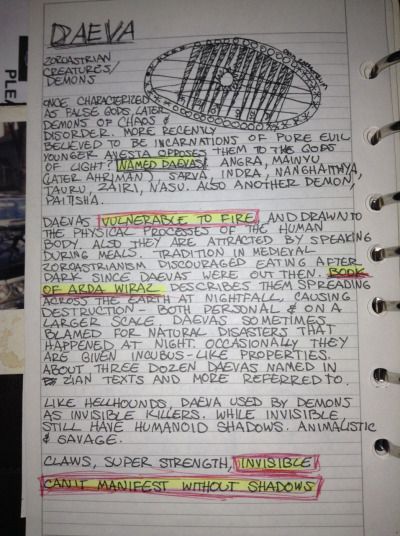 DAEVA
ZOROASTRIAN
CREATURES/
DEMONS
ONCE CHARACTERIZED
AS FALSE GODS, LATER
DEMONS OF CHAOS &
DISORDER. MORE RECENTLY
BELIEVED TO BE INCARNATIONS OF PURE EVIL
YOUNGER AVESTA OPPOSES THEM TO THE GODS
OF LIGHT. NAMED DAEVAS: ANGRA, MAINYU
(LATER AHRIMAN) SARVA, INDRA, NANGHAITHYA,
TAURU, ZAIRI, NASU. ALSO ANOTHER DEMON,
PAITISHA.
DAEVAS VULNERABLE TO FIRE AND DRAWN TO
THE PHYSICAL PROCESSES OF THE HUMAN
BODY. ALSO THEY ARE ATTRACTED BY SPEAKING
DURING MEALS. TRADITION IN MEDIEVAL
ZOROASTRIANISM DISCOURAGED EATING AFTER
DARK SINCE DAEVAS WERE OUT THEN. BOOK
OF ARDA WIRAZ DESCRIBES THEM SPREADING
ACROSS THE EARTH AT NIGHTFALL, CAUSING
DESTRUCTION - BOTH PERSONAL & ON A
LARGER SCALE. DAEVAS SOMETIMES
BLAMED FOR NATURAL DISASTERS THAT
HAPPENED AT NIGHT. OCCASIONALLY THEY
ARE GIVEN INCUBUS-LIKE PROPERTIES.
ABOUT THREE DOZEN DAEVAS NAMED IN
ZIAN TEXTS AND MORE REFERRED TO.
LIKE HELLHOUNDS, DAEVA USED BY DEMONS
AS INVISIBLE KILLERS. WHILE INVISIBLE
STILL HAVE HUMANOID SHADOWS. ANIMALISTIC
& SAVAGE.
CLAWS, SUPER STRENGTH, INVISIBLE
CAN'T MANIFEST WITHOUT SHADOWS